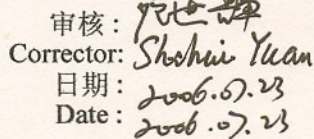 审核：阮世輝
Corrector: Shohui Yuan
日期：2006.07.23
Date : 2006.07.23